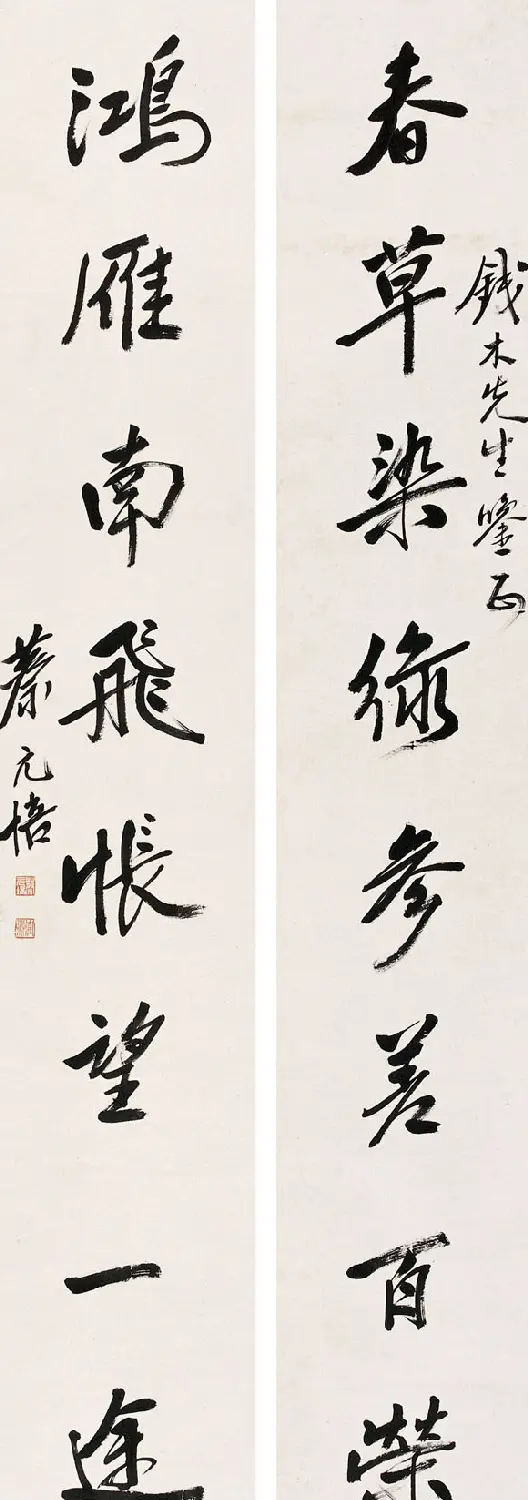 錢木先生鑒正
春草染綠參差百榮
鴻雁南飛悵望一途
蔡元培